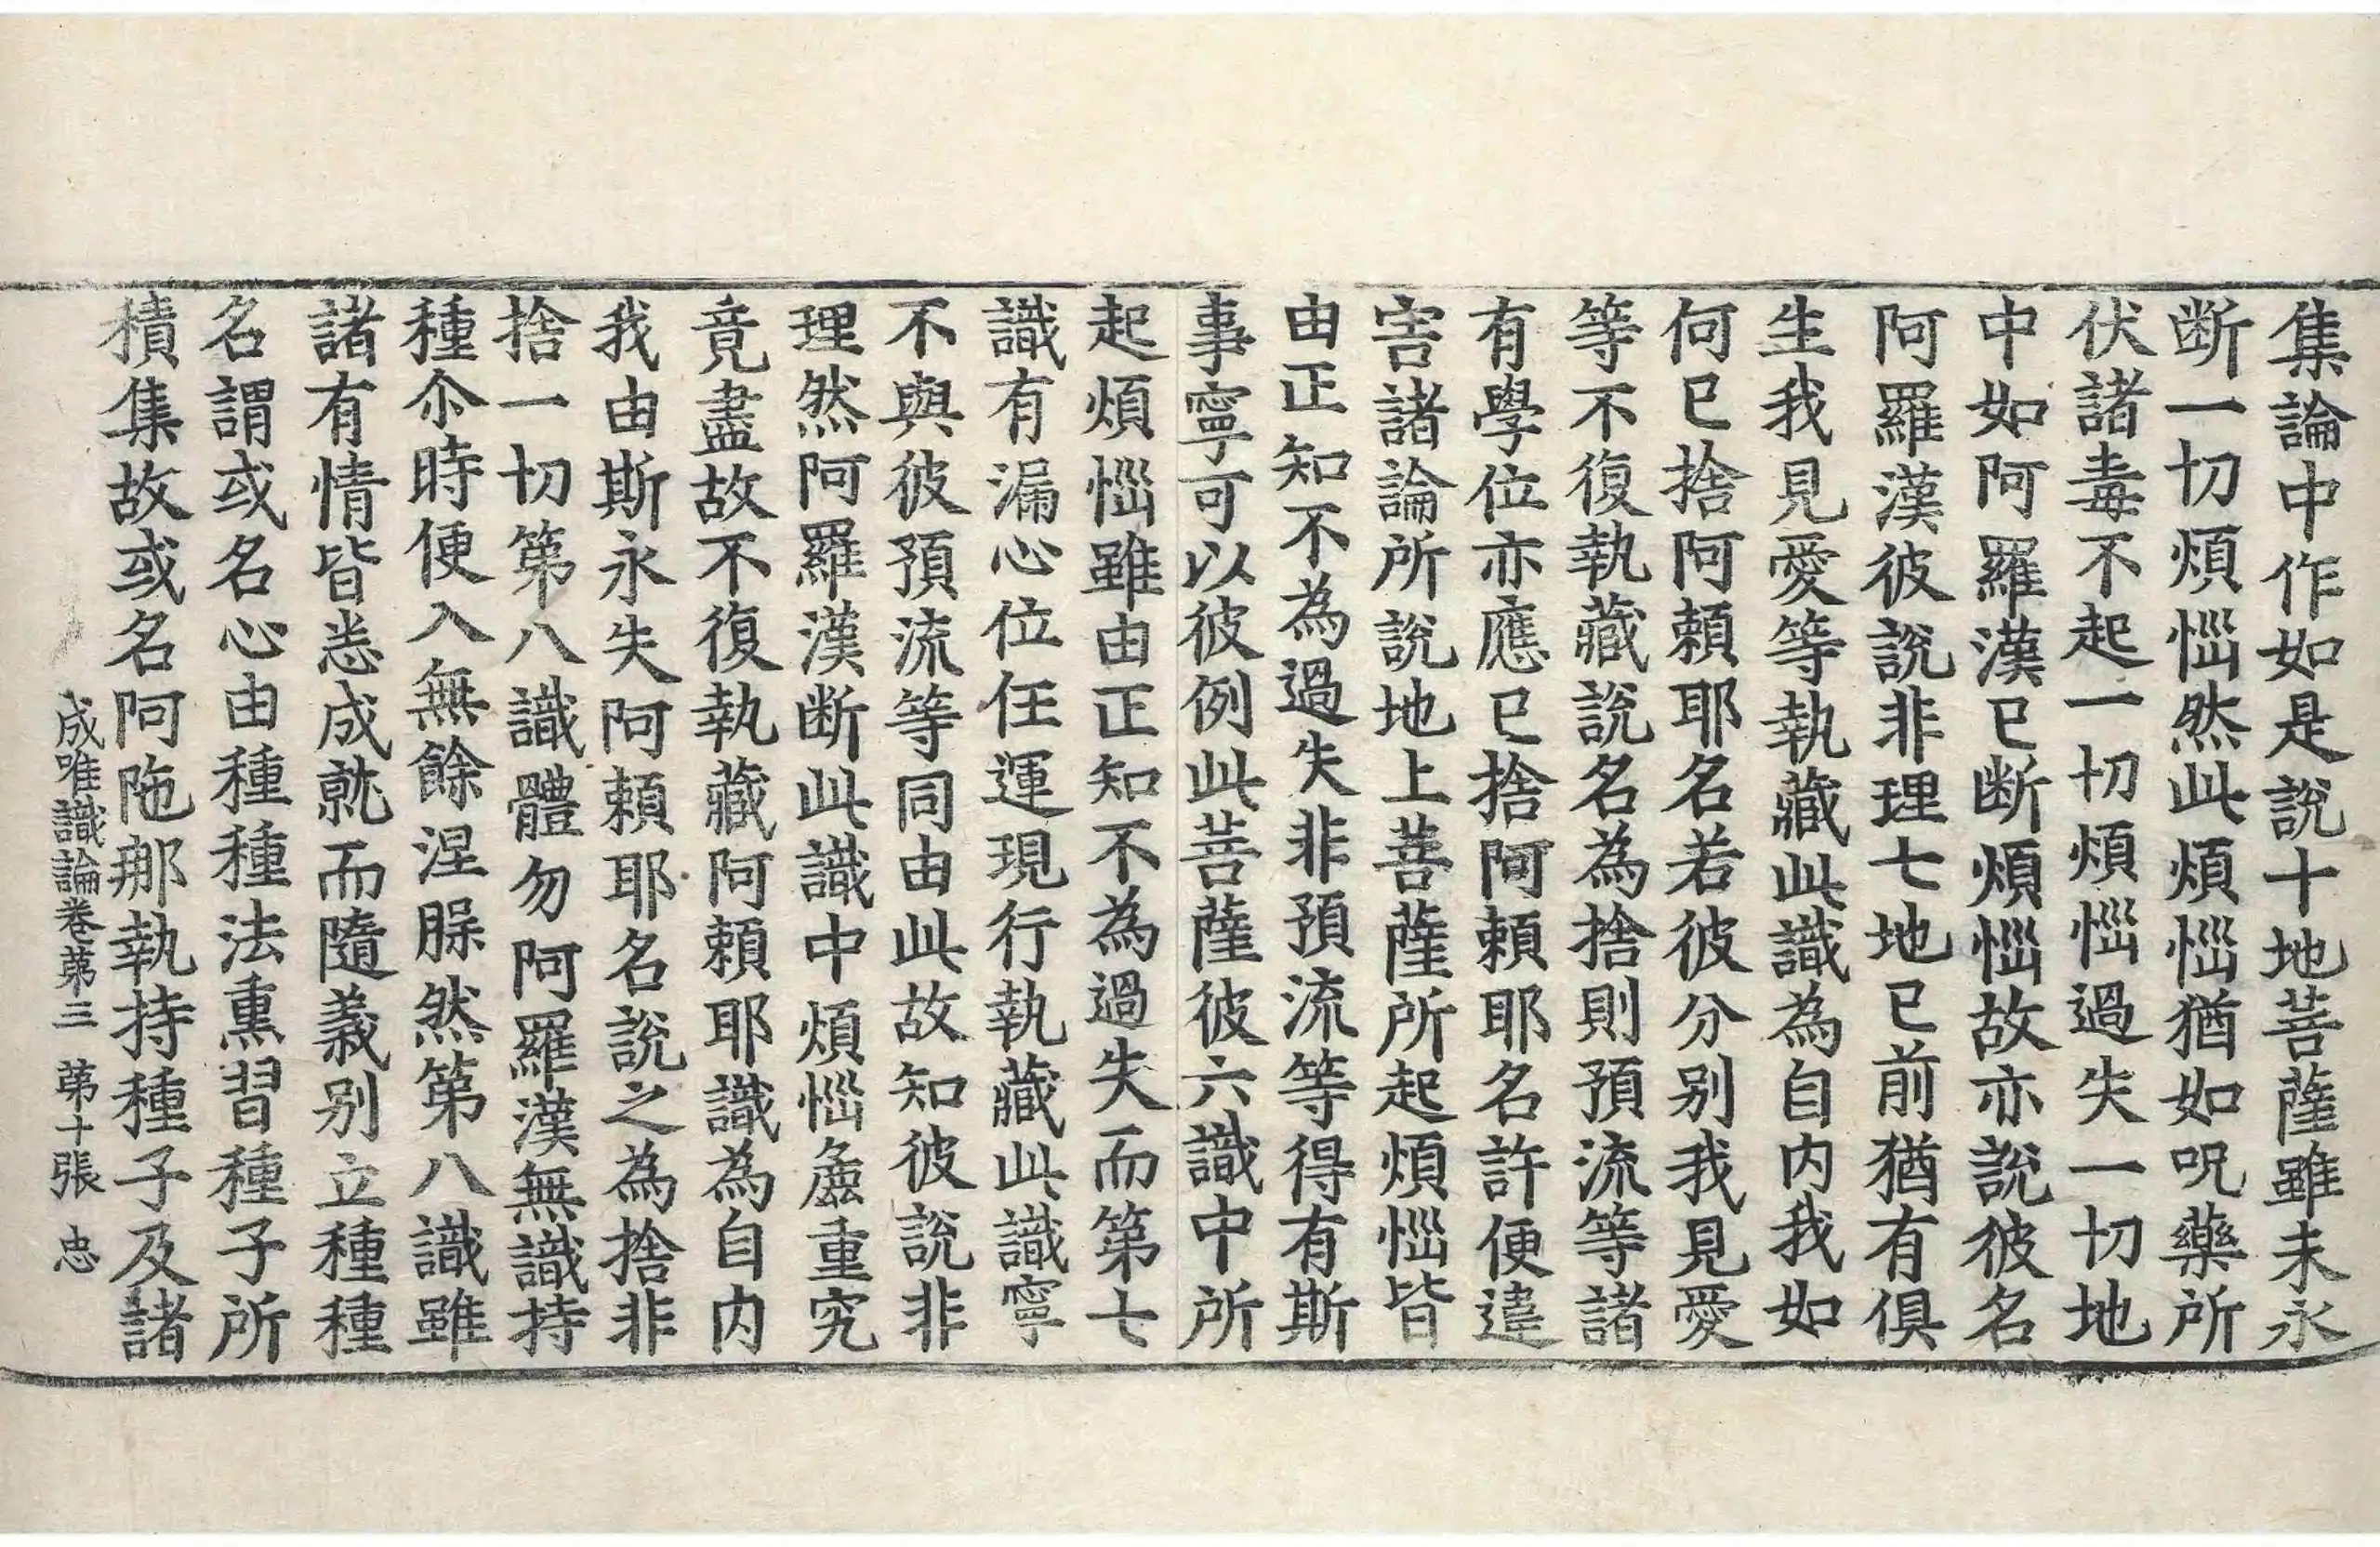 集論中作如是說十地菩薩雖未永
断一切煩惱然此煩惱猶如呪藥所
伏諸毒不起一切煩惱過失一切地
中如阿羅漢已断煩惱故亦說彼名
阿羅漢彼說非理七地已前猶有俱
生我見愛等執藏此識為自內我如
何已捨阿頼耶名若彼分別我見愛
等不復執藏說名為捨則預流等諸
有學位亦應已捨阿頼耶名許便違
害諸論所說地上菩薩所起煩惱皆
由正知不為過失非預流等得有斯
事寧可以彼例此菩薩彼六識中所
起煩惱雖由正知不為過失而第七
識有漏心位任運現行執藏此識寧
不與彼預流等同由此故知彼說非
理然阿羅漢断此識中煩惱麁重究
竟盡故不復執藏阿頼耶識為自內
我由斯永失阿頼耶名說之為捨非
捨一切第八識體勿阿羅漢無識持
種尒時便入無餘涅槃然第八識雖
諸有情皆悉成就而隨義別立種種
名謂或名心由種種法熏習種子所
積集故或名阿陁那執持種子及諸
成唯識論卷苐三 苐十張 忠